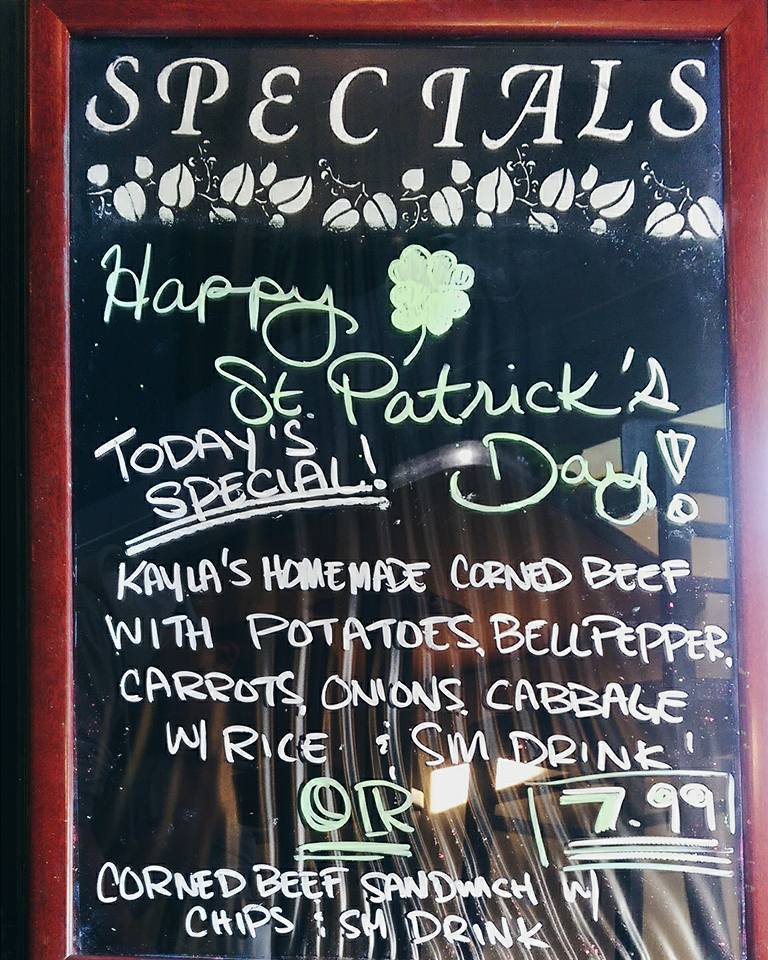 SPECIALS
Happy
St. Patrick's
Day!
TODAY'S
SPECIAL!
KAYLA'S HOMEMADE CORNED BEEF
WITH POTATOES, BELLPEPPER,
CARROTS, ONIONS, CABBAGE
W/ RICE & SM DRINK!
OR 7.99
CORNED BEEF SANDWICH W/
CHIPS & SM DRINK